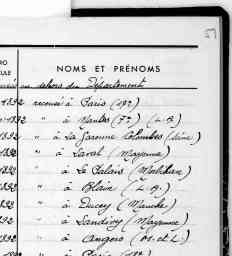 RO
LLE
NOMS ET PRÉNOMS
en dehors du Département
1892 recensé à Paris (19e)
1892 " à Nantes (7e) (L.-I.)
1892 " à La Garenne Colombes (Seine)
1892 " à Laval (Mayenne)
1892 " à Le Palais (Morbihan)
1892 " à Blain (L.-I.)
1892 " à Ducey (Manche)
1892 " à Landivy (Mayenne)
1892 " à Angers (M. et L.)
1892 " à Paris